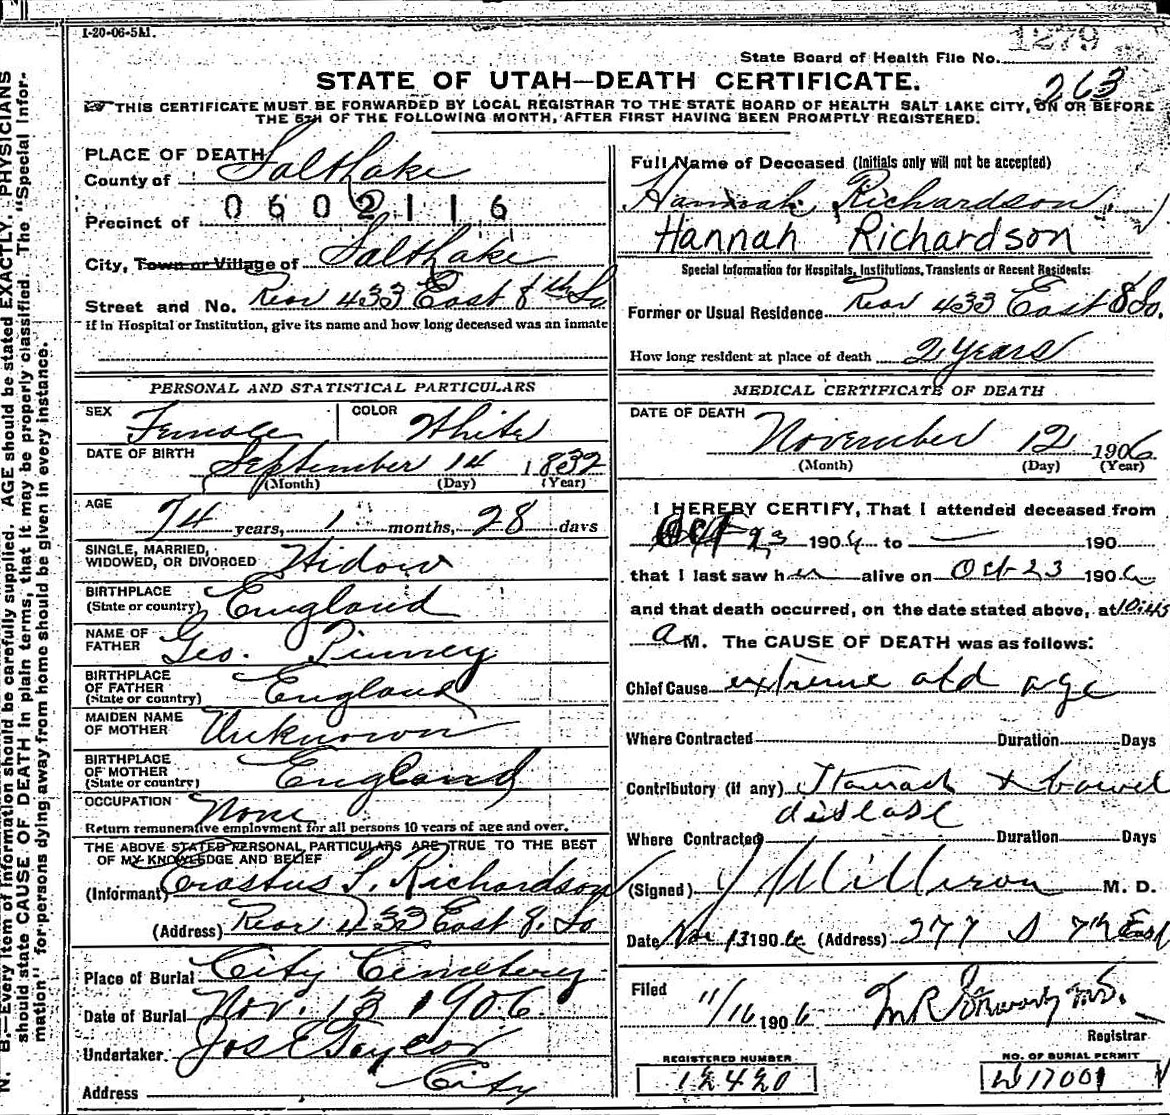 1-20-06-5M.
1279
State Board of Health File No.
263
STATE OF UTAH—DEATH CERTIFICATE.
THIS CERTIFICATE MUST BE FORWARDED BY LOCAL REGISTRAR TO THE STATE BOARD OF HEALTH SALT LAKE CITY, ON OR BEFORE
THE 5TH OF THE FOLLOWING MONTH, AFTER FIRST HAVING BEEN PROMPTLY REGISTERED.
PLACE OF DEATH
County of Salt Lake
Precinct of 0602116
City, Town or Village of Salt Lake
Street and No. Rear 433 East 8th So
If in Hospital or Institution, give its name and how long deceased was an inmate
PERSONAL AND STATISTICAL PARTICULARS
SEX Female COLOR White
DATE OF BIRTH September 14 1832
(Month) (Day) (Year)
AGE 74 years, 1 months, 28 days
SINGLE, MARRIED,
WIDOWED, OR DIVORCED Widow
BIRTHPLACE
(State or country) England
NAME OF
FATHER Geo. Pinney
BIRTHPLACE
OF FATHER
(State or country) England
MAIDEN NAME
OF MOTHER Unknown
BIRTHPLACE
OF MOTHER
(State or country) England
OCCUPATION None
Return remunerative employment for all persons 10 years of age and over.
THE ABOVE STATED PERSONAL PARTICULARS ARE TRUE TO THE BEST
OF MY KNOWLEDGE AND BELIEF
(Informant) Erastus P. Richardson
(Address) Rear 433 East 8. So
Place of Burial City Cemetery
Date of Burial Nov. 13 1906
Undertaker Jos E Taylor
Address City
Full Name of Deceased (Initials only will not be accepted)
Hannah Richardson
Hannah Richardson
Special Information for Hospitals, Institutions, Transients or Recent Residents:
Former or Usual Residence Rear 433 East 8 So.
How long resident at place of death 2 years
MEDICAL CERTIFICATE OF DEATH
DATE OF DEATH November 12 1906
(Month) (Day) (Year)
I HEREBY CERTIFY, That I attended deceased from
Oct 23 1906 to — 190
that I last saw her alive on Oct 23 1906
and that death occurred, on the date stated above, at 10:45
a M. The CAUSE OF DEATH was as follows:
Chief Cause extreme old age
Where Contracted Duration Days
Contributory (if any) Stomach & bowel
disease
Where Contracted Duration Days
(Signed) M. D.
Date Nov 13 1906 (Address) 277 S 7th East
Filed 11/16 1906
Registrar
REGISTERED NUMBER
12420
NO. OF BURIAL PERMIT
W17001
N. B.—Every item of information should be carefully supplied. AGE should be stated EXACTLY. PHYSICIANS
should state CAUSE OF DEATH in plain terms, that it may be properly classified. The "Special Infor-
mation" for persons dying away from home should be given in every instance.